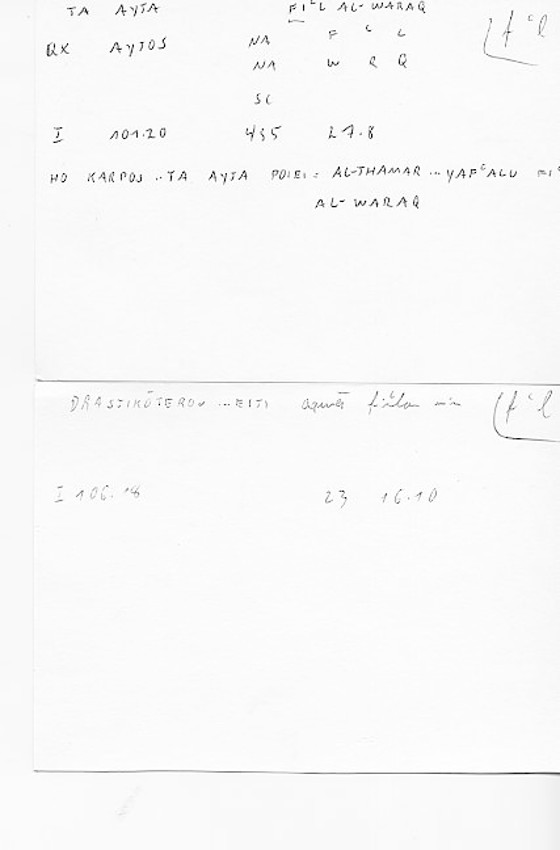 TA AYTA FIʿL AL-WARAQ
QX AYTOS NA F ʿ L
NA W R Q
SC
I 101.20 435 27.8
HO KARPOS ..TA AYTA POIEI = AL-THAMAR ... YAFʿALU
AL-WARAQ
fʿl
DRASTIKŌTERON ...ESTI aqwā fiʿlan min
fʿl
I 106.18 23 16.10